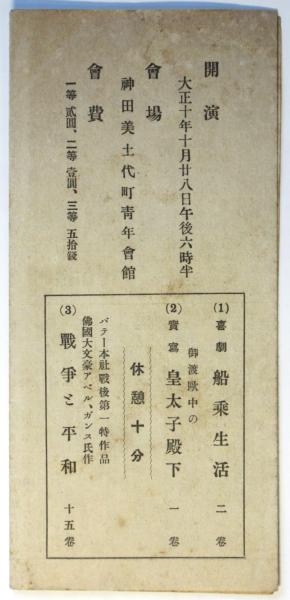 開演
大正十年十月廿八日午後六時半
會場
神田美土代町靑年會館
會費
一等 貳圓、二等 壹圓、三等 五拾錢
(1) 喜劇 船乘生活 二卷
御渡歐中の
(2) 實寫 皇太子殿下 一卷
休憩十分
パテー本社戰後第一特作品
佛國大文豪アベル、ガンス氏作
(3) 戰爭と平和 十五卷